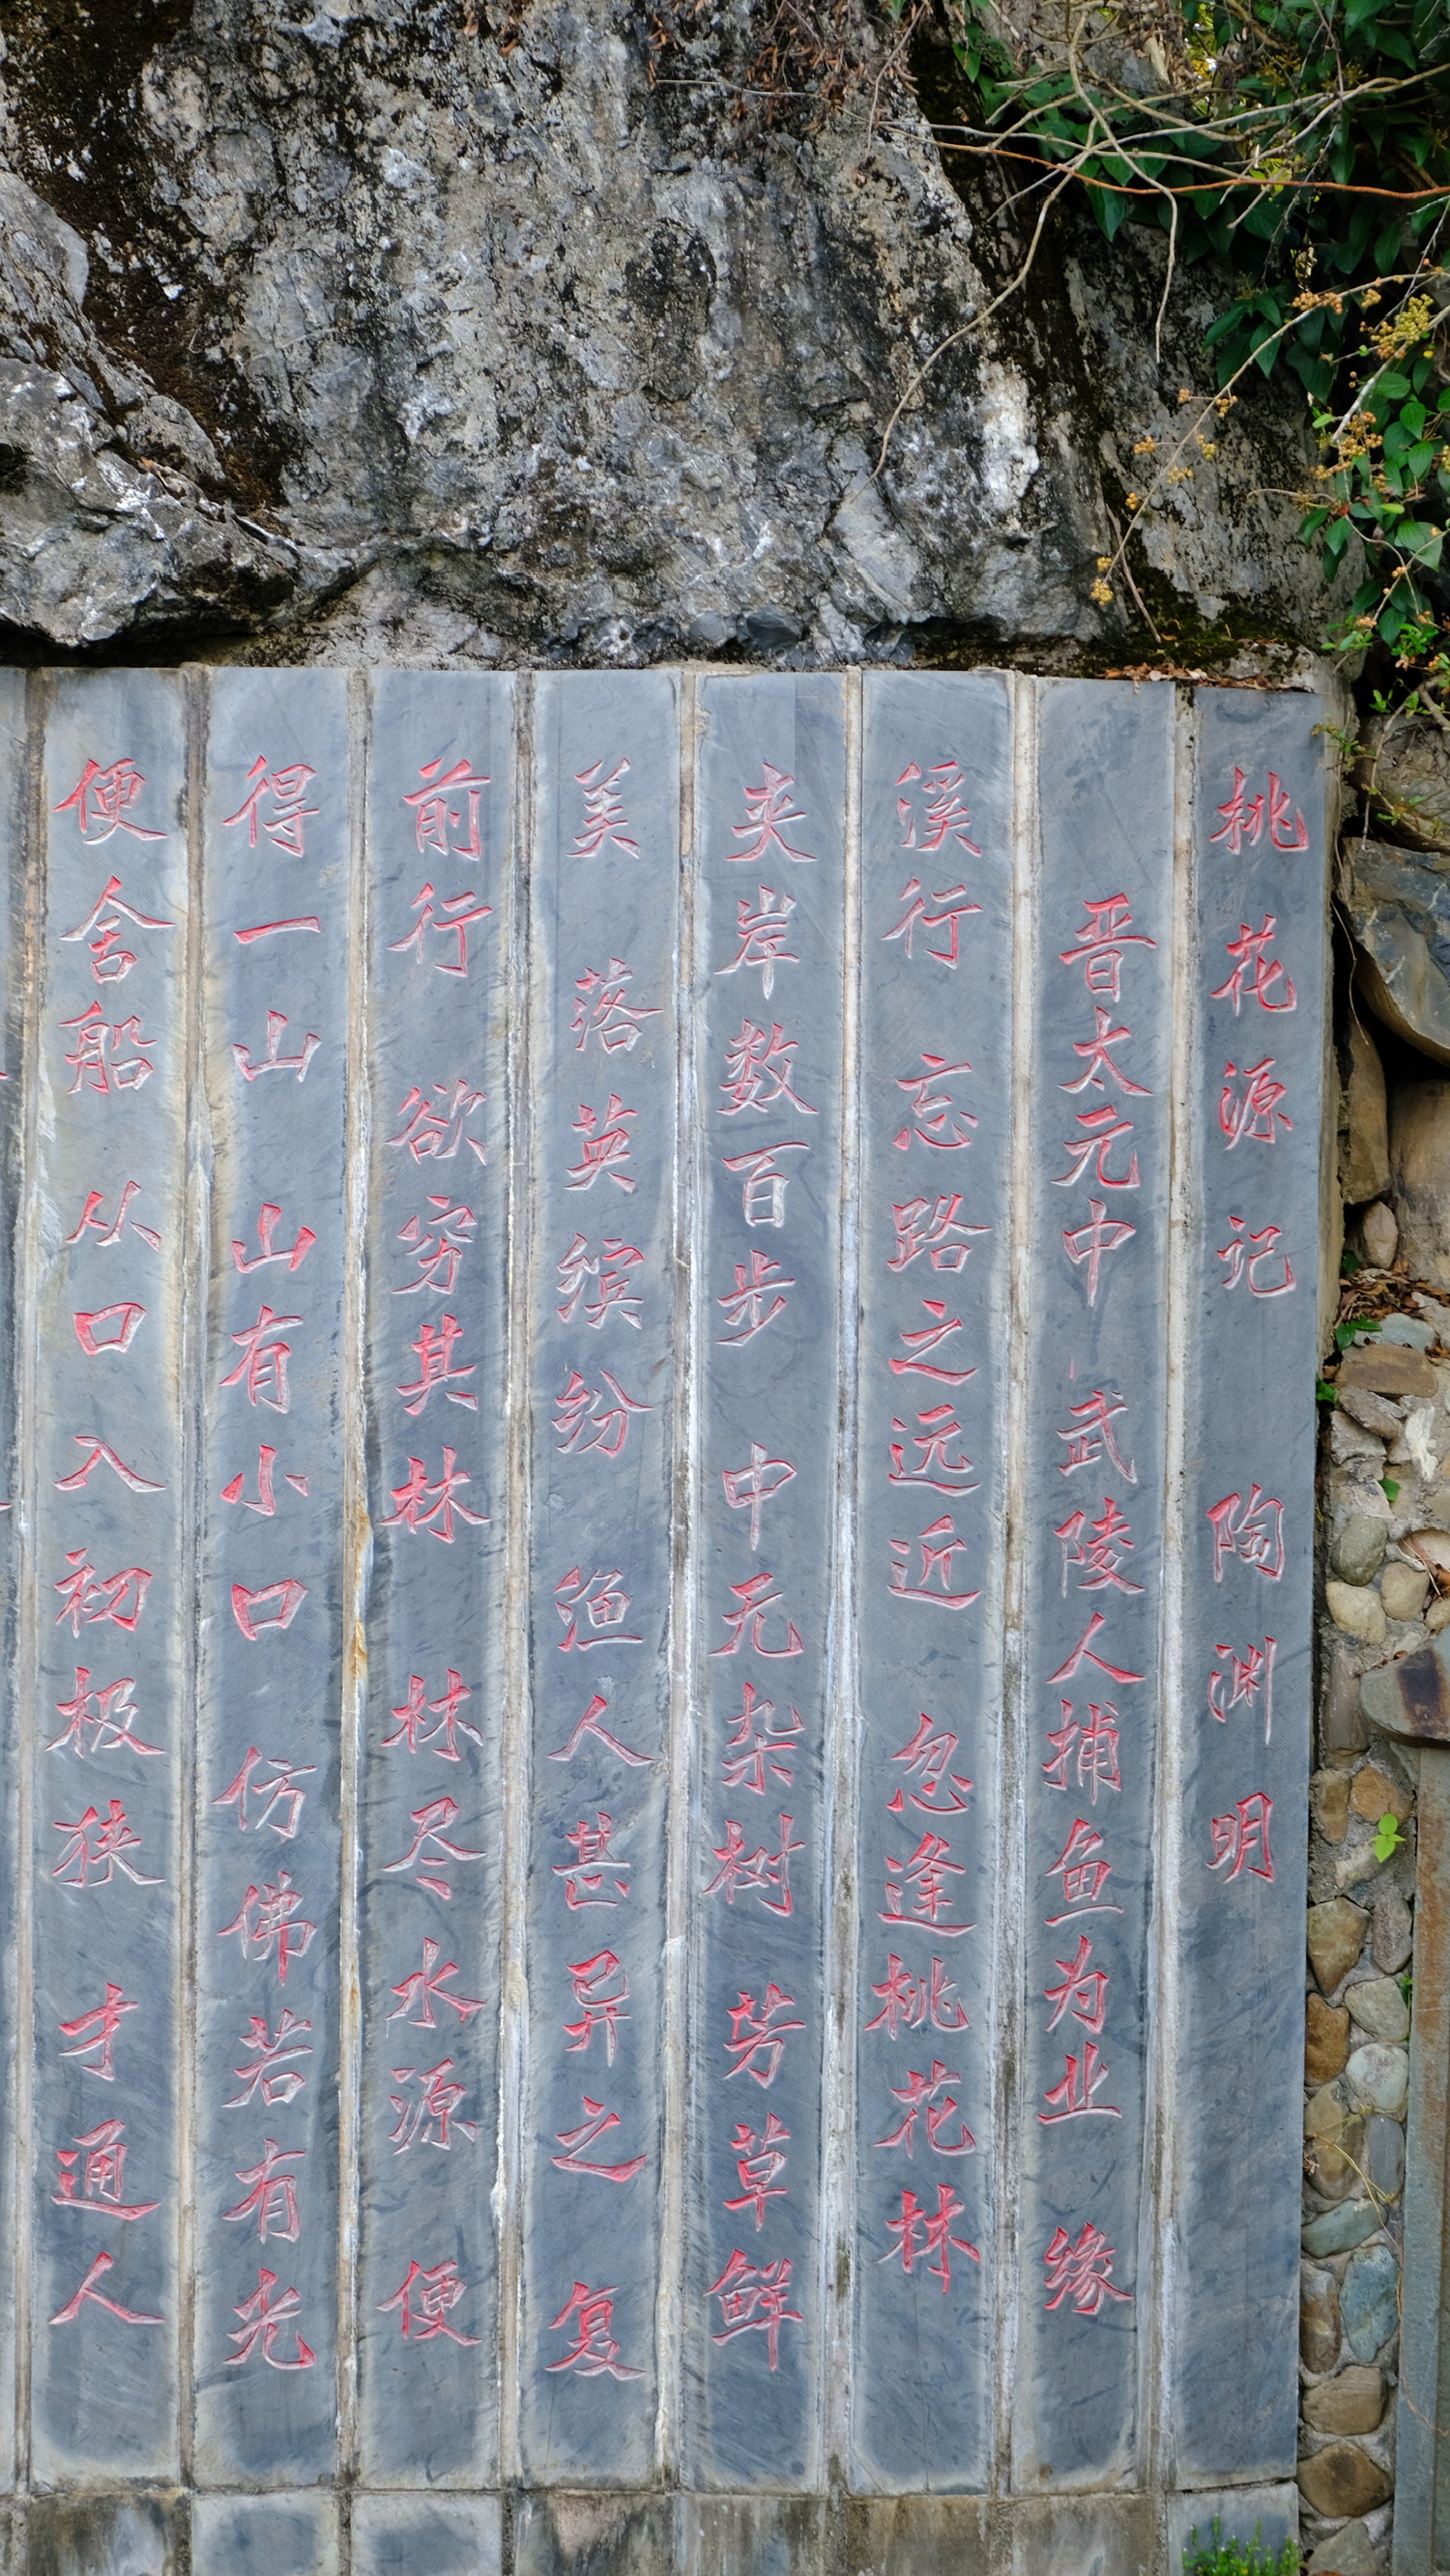 桃花源记 陶渊明
晋太元中 武陵人捕鱼为业 缘
溪行 忘路之远近 忽逢桃花林
夹岸数百步 中无杂树 芳草鲜
美 落英缤纷 渔人甚异之 复
前行 欲穷其林 林尽水源 便
得一山 山有小口 仿佛若有光
便舍船 从口入初极狭 才通人